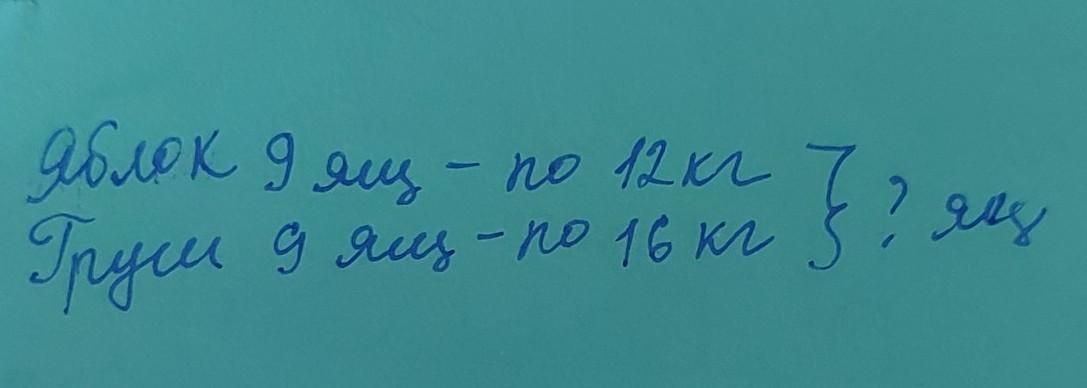 Яблок 9 ящ - по 12 кг } ? ящ
Груш 9 ящ - по 16 кг